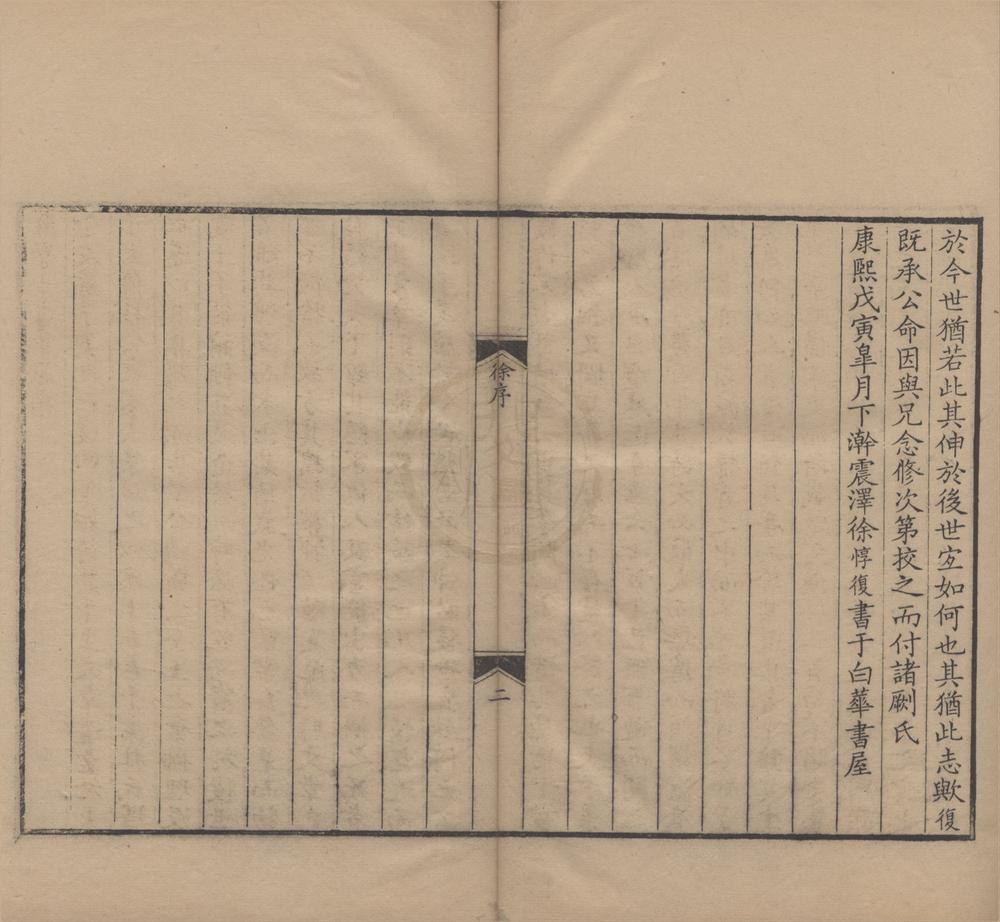 於今世猶若此其伸於後世宐如何也其猶此志歟復
既承公命因與兄念修次第挍之而付諸劂氏
康熙戊寅皐月下澣震澤徐惇復書于白華書屋
徐序
二